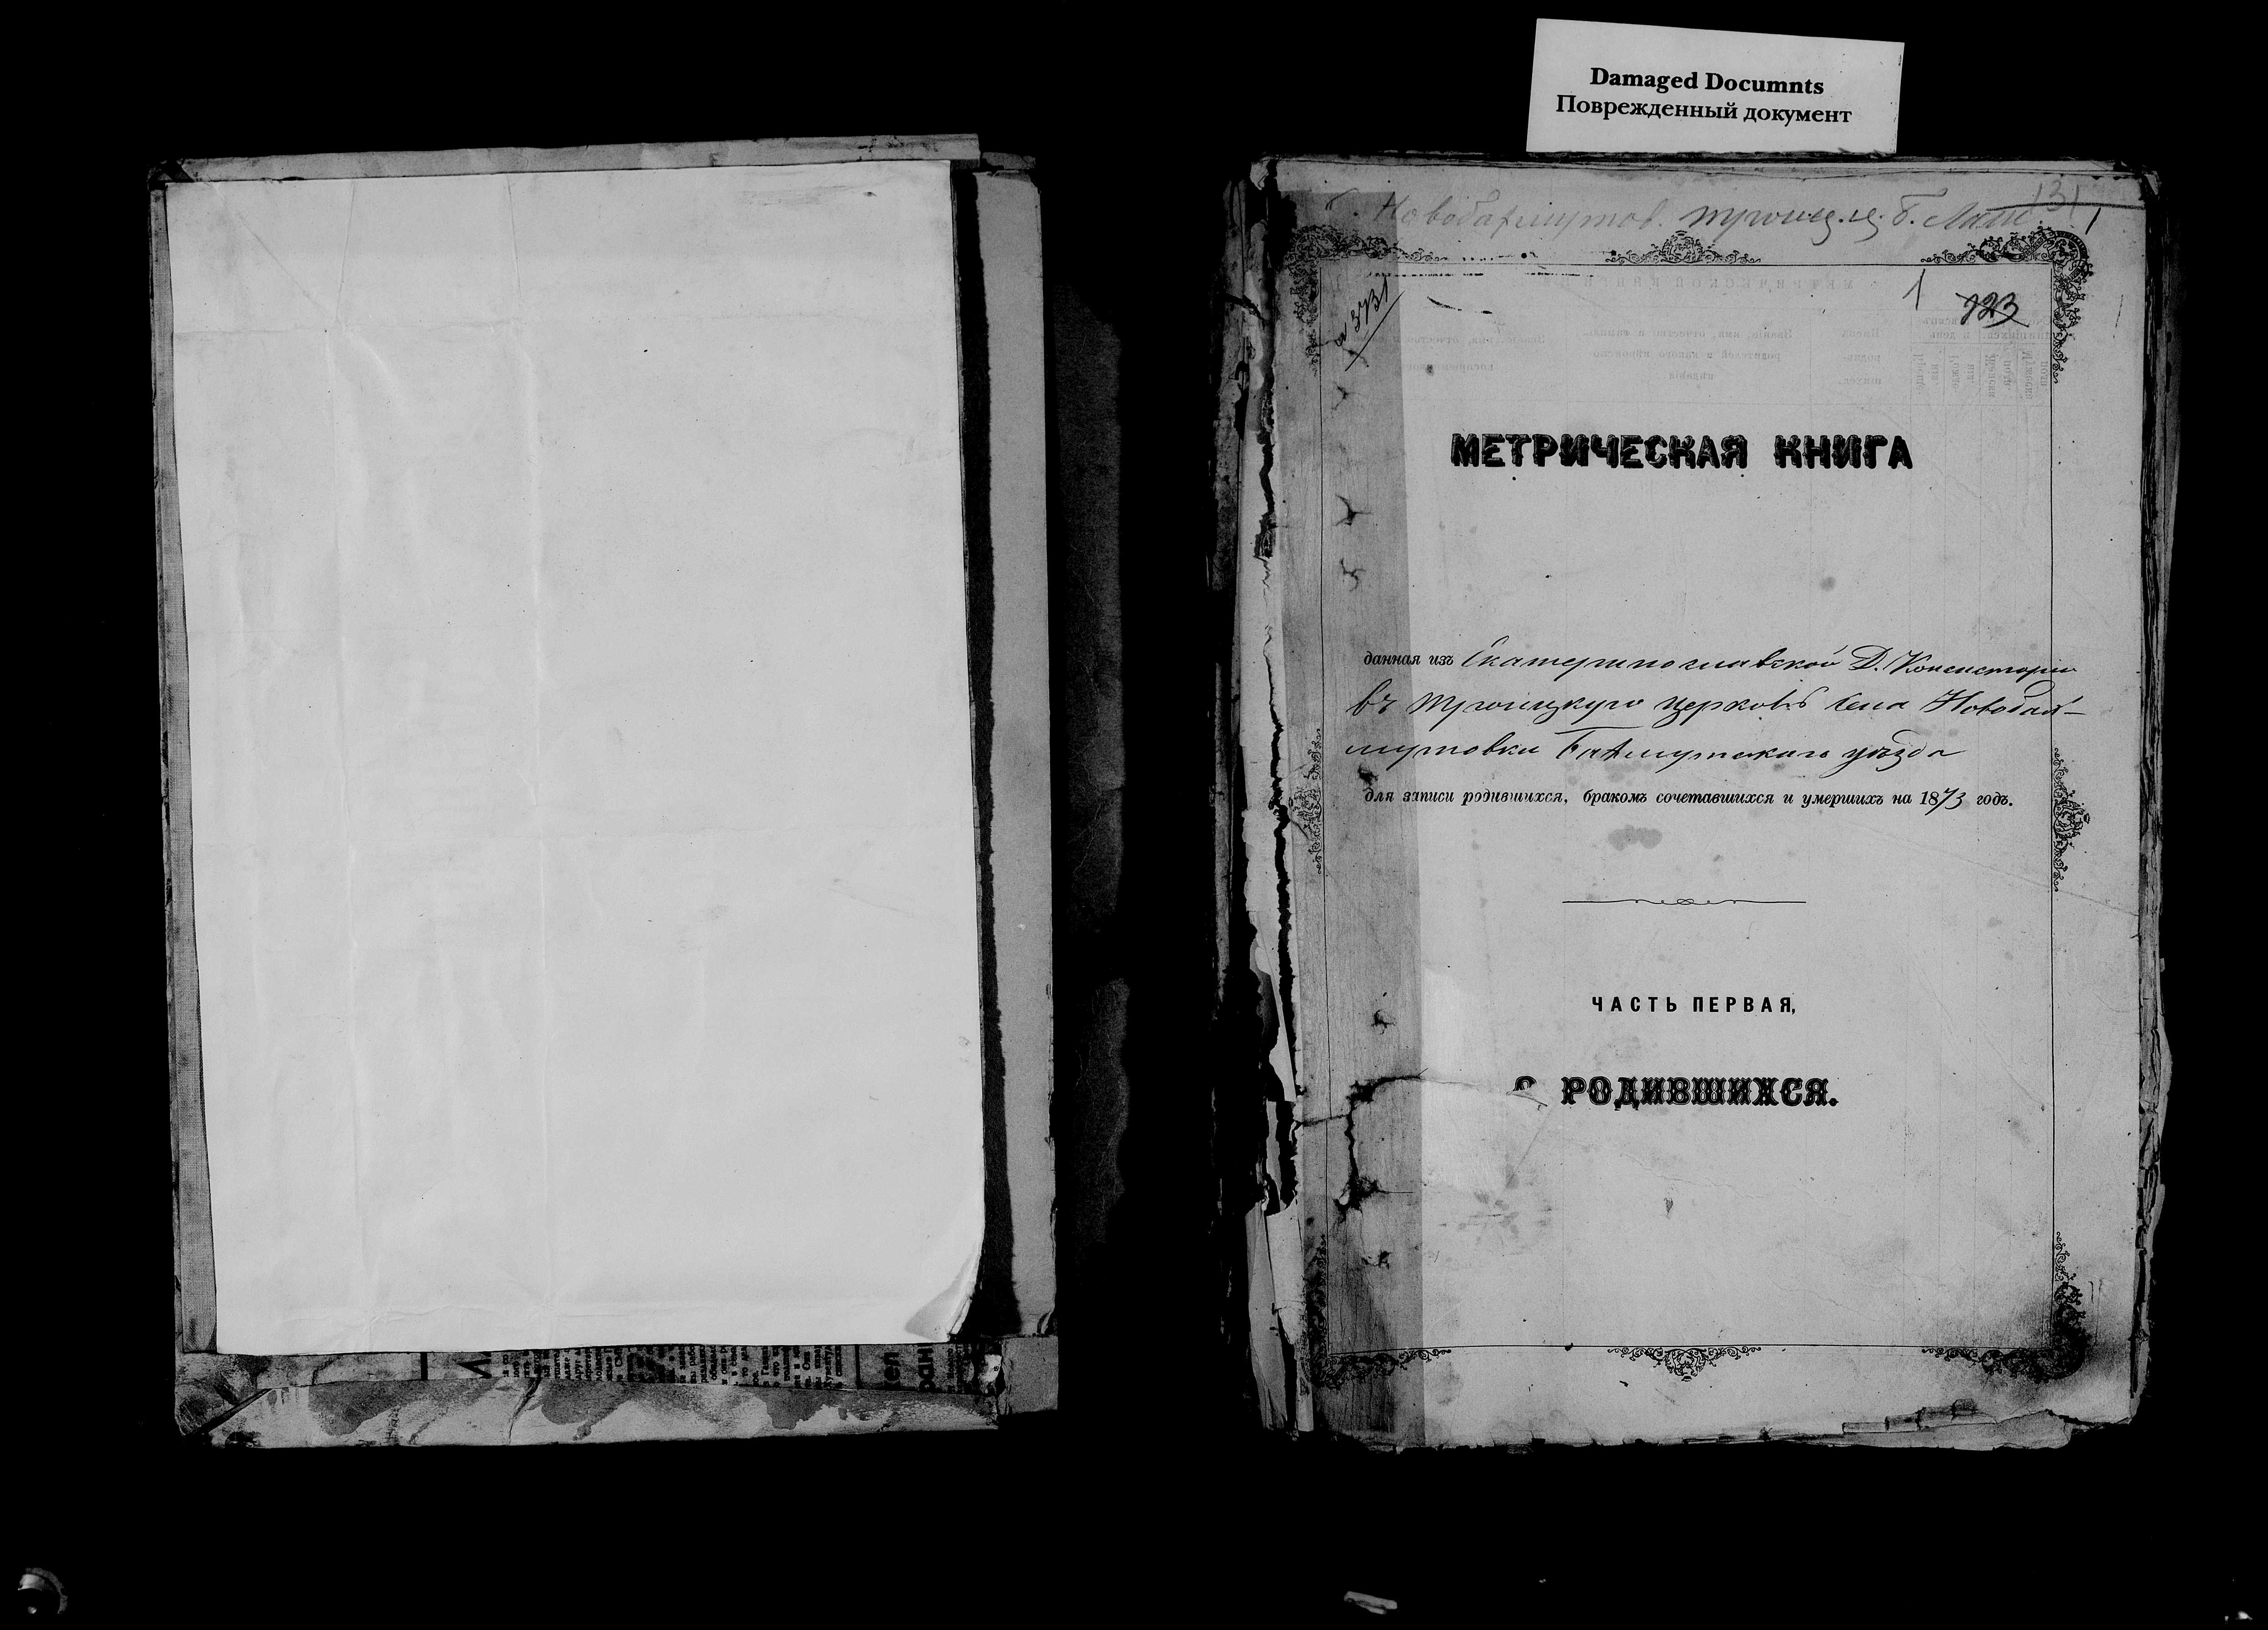 Damaged Documnts
Поврежденный документ
131
Новобахмутов. троиц. ц. Б.
1
1
123
МЕТРИЧЕСКАЯ КНИГА
данная изъ Екатеринославской Д. Консисторіи
въ Троицкую церковь села Новобах-
мутовки Бахмутскаго уѣзда
для записи родившихся, бракомъ сочетавшихся и умершихъ на 1873 годъ.
ЧАСТЬ ПЕРВАЯ,
О РОДИВШИХСЯ.